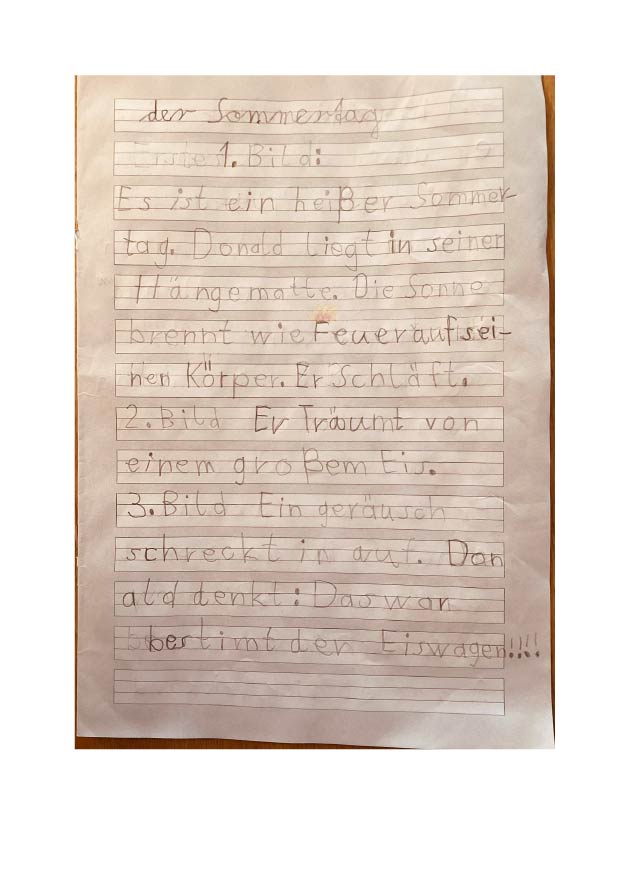 der Sommertag
1. Bild:
Es ist ein heißer Sommer-
tag. Donald liegt in seiner
Hängematte. Die Sonne
brennt wie Feuer auf sei-
nen Körper. Er Schläft.
2. Bild Er Träumt von
einem großem Eis.
3. Bild Ein geräusch
schreckt in auf. Don
ald denkt: Das war
bestimt der Eiswagen!!!!